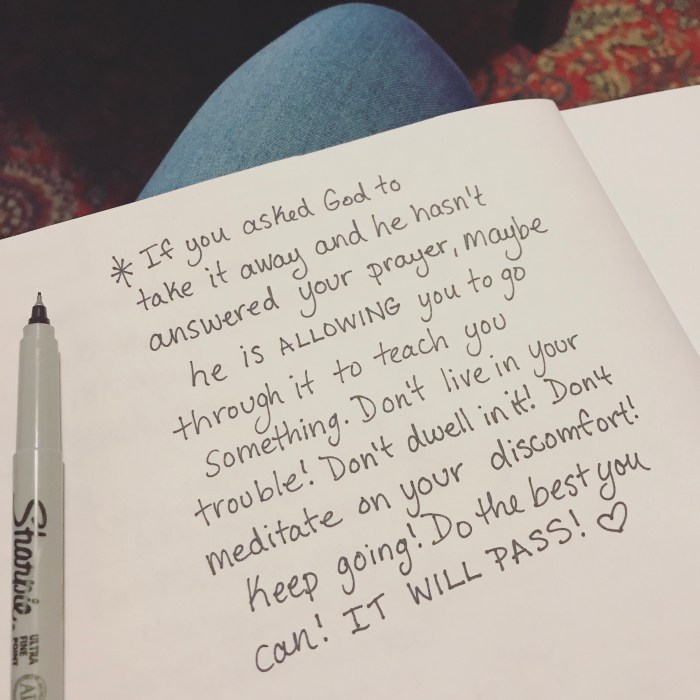 * If you asked God to
take it away and he hasn't
answered your prayer, maybe
he is ALLOWING you to go
through it to teach you
Something. Don't live in your
trouble! Don't dwell in it! Don't
meditate on your discomfort!
Keep going! Do the best you
can! IT WILL PASS! ♡
Sharpie
ULTRA
FINE
POINT